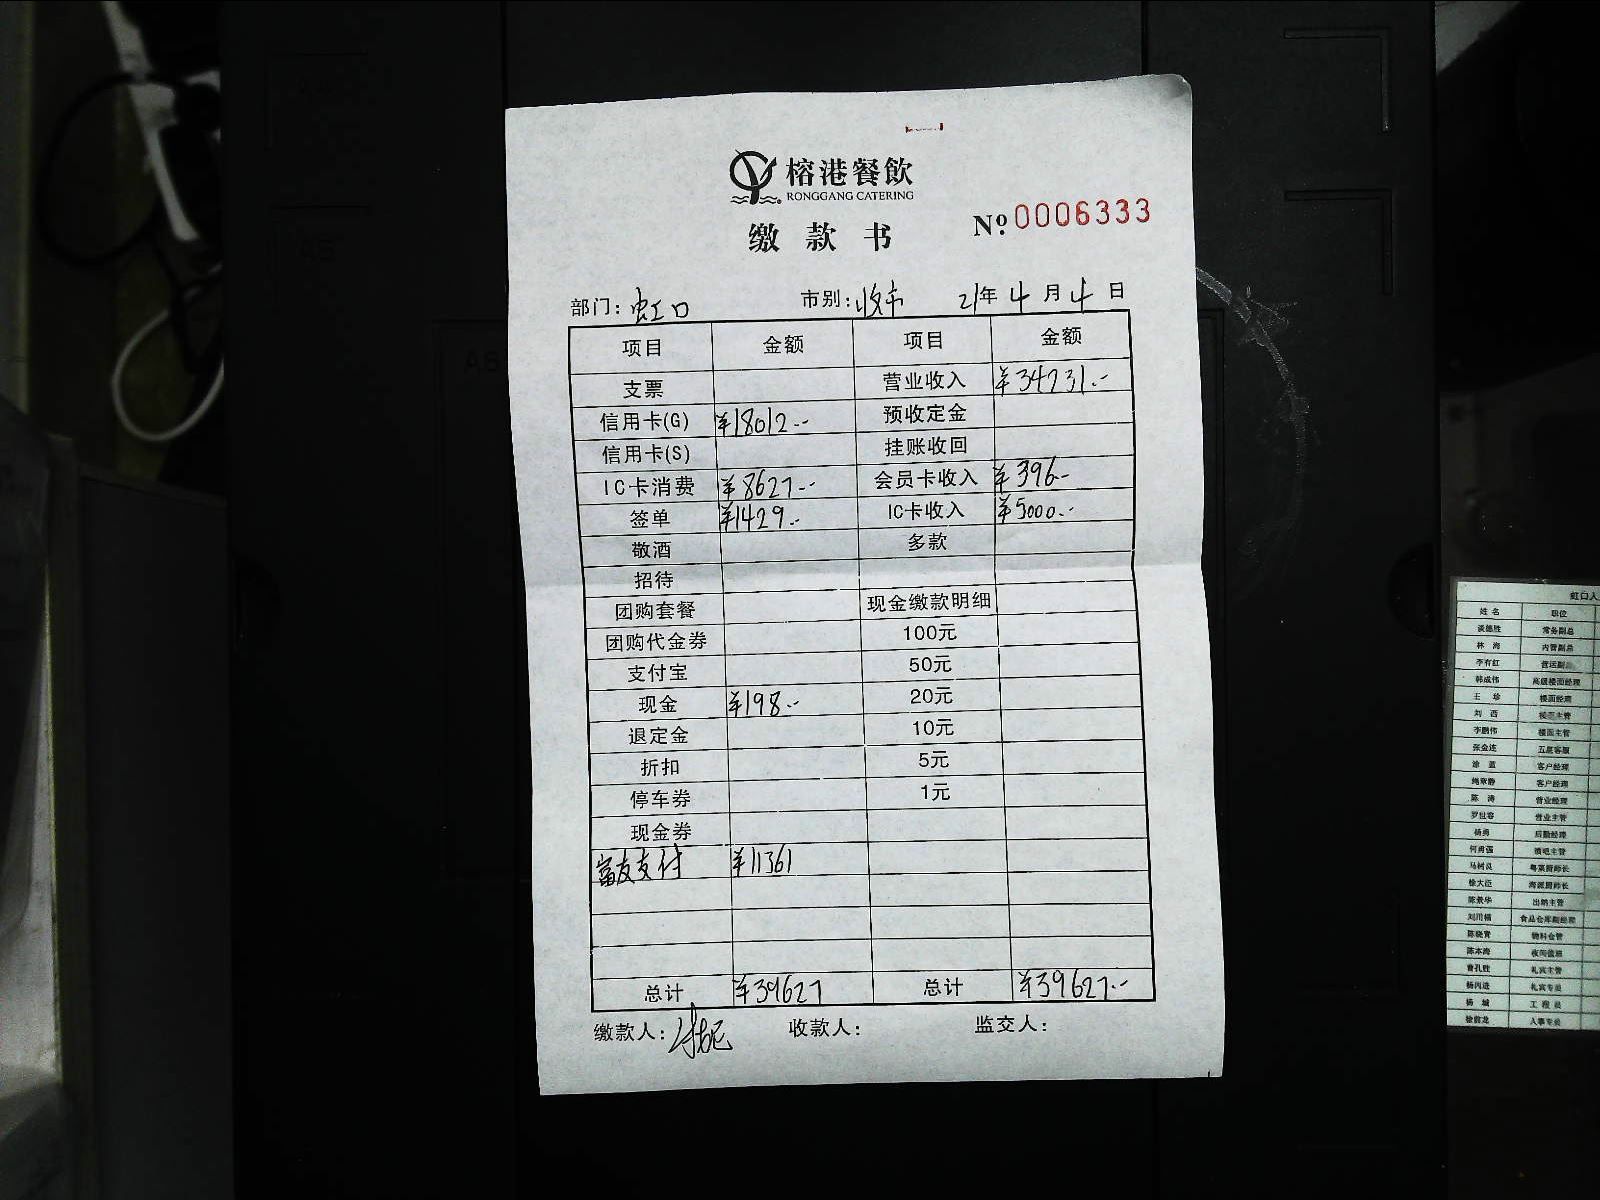 榕港餐飲
RONGGANG CATERING
缴款书
Nº 0006333
部门: 虹口 市别: 收市 21年 4月 4日
项目 金额 项目 金额
支票 营业收入 ¥34231.-
信用卡(G) ¥18012.- 预收定金
信用卡(S) 挂账收回
IC卡消费 ¥8627.- 会员卡收入 ¥396.-
签单 ¥1429.- IC卡收入 ¥5000.-
敬酒 多款
招待
团购套餐 现金缴款明细
团购代金券 100元
支付宝 50元
现金 ¥198.- 20元
退定金 10元
折扣 5元
停车券 1元
现金券
富友支付 ¥11361
总计 ¥39627 总计 ¥39627.-
缴款人: 收款人: 监交人:
虹口人
姓名 职位
谈德胜 常务副总
林海 内管副总
李有红 营运副总
韩成伟 高级楼面经理
王珍 楼面经理
刘西 楼面主管
李鹏伟 楼面主管
张金连 五星客服
涂蓝 客户经理
客户经理
陈涛 营业经理
罗世容 营业主管
杨勇 后勤经理
何勇强 酒吧主管
马树良 粤菜厨师长
徐大臣 海派厨师长
陈景华 出纳主管
刘川福 食品仓库副经理
陈晓青 物料仓管
陈本海 夜间值班
曹孔胜 礼宾主管
杨闪进 礼宾专员
杨城 工程员
人事专员